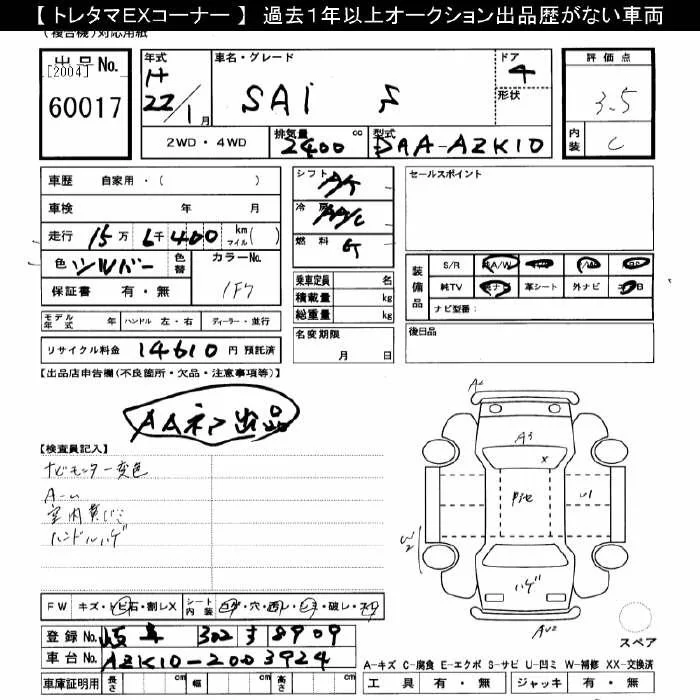 【 トレタマEXコーナー 】 過去1年以上オークション出品歴がない車両
(複合機)対応用紙
出品No.
[2004]
60017
年式
H
22/1月
車名・グレード
SAI S
ドア
4
形状
評価点
3.5
内装
C
2WD・4WD
排気量
2400 cc
型式
DAA-AZK10
車歴 自家用・( )
車検 年 月
走行 15万 6千 400 km マイル( )
色 シルバー
色替
カラーNo.
1F7
保証書 有・無
モデル年式 年
ハンドル 左・右
ディーラー・並行
リサイクル料金 14610 円 預託済
シフト A/T
冷房 AA/C
燃料 G
乗車定員 名
積載量 kg
総重量 kg
名変期限
月 日
セールスポイント
装備品
S/R 純A/W
純TV 純ナビ 革シート 外ナビ
ナビ型番:
後日品
【出品店申告欄(不良箇所・欠品・注意事項等)】
AAネット出品
【検査員記入】
ナビモニター変色
室内
ハンドルハゲ
A2
A3
X
U1
W2
ハゲ
AU2
スペア
FW キズ・トビ石・割レX
シート内装 コゲ・穴・汚レ・シミ・破レ・スレ
登録No. 岐阜 302 す 8909
車台No. AZK10-2003924
車庫証明用 長さ cm 幅 cm 高さ cm
A-キズ C-腐食 E-エクボ S-サビ U-凹ミ W-補修 XX-交換済
工具 有・無 ジャッキ 有・無